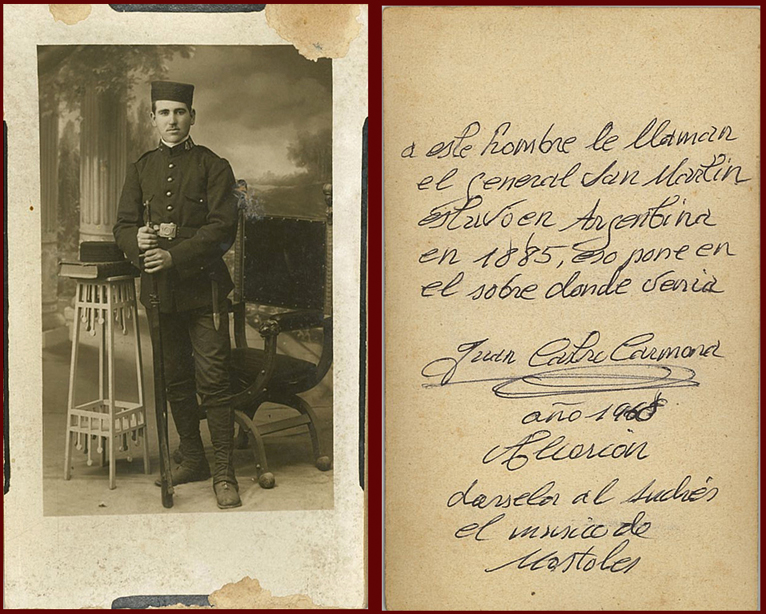 a este hombre le llaman
el general San Martin
estuvo en Argentina
en 1885, eso pone en
el sobre donde venia
Juan Castro Carmona
año 1968
Alcorcón
darselo al
el musico de
Mostoles